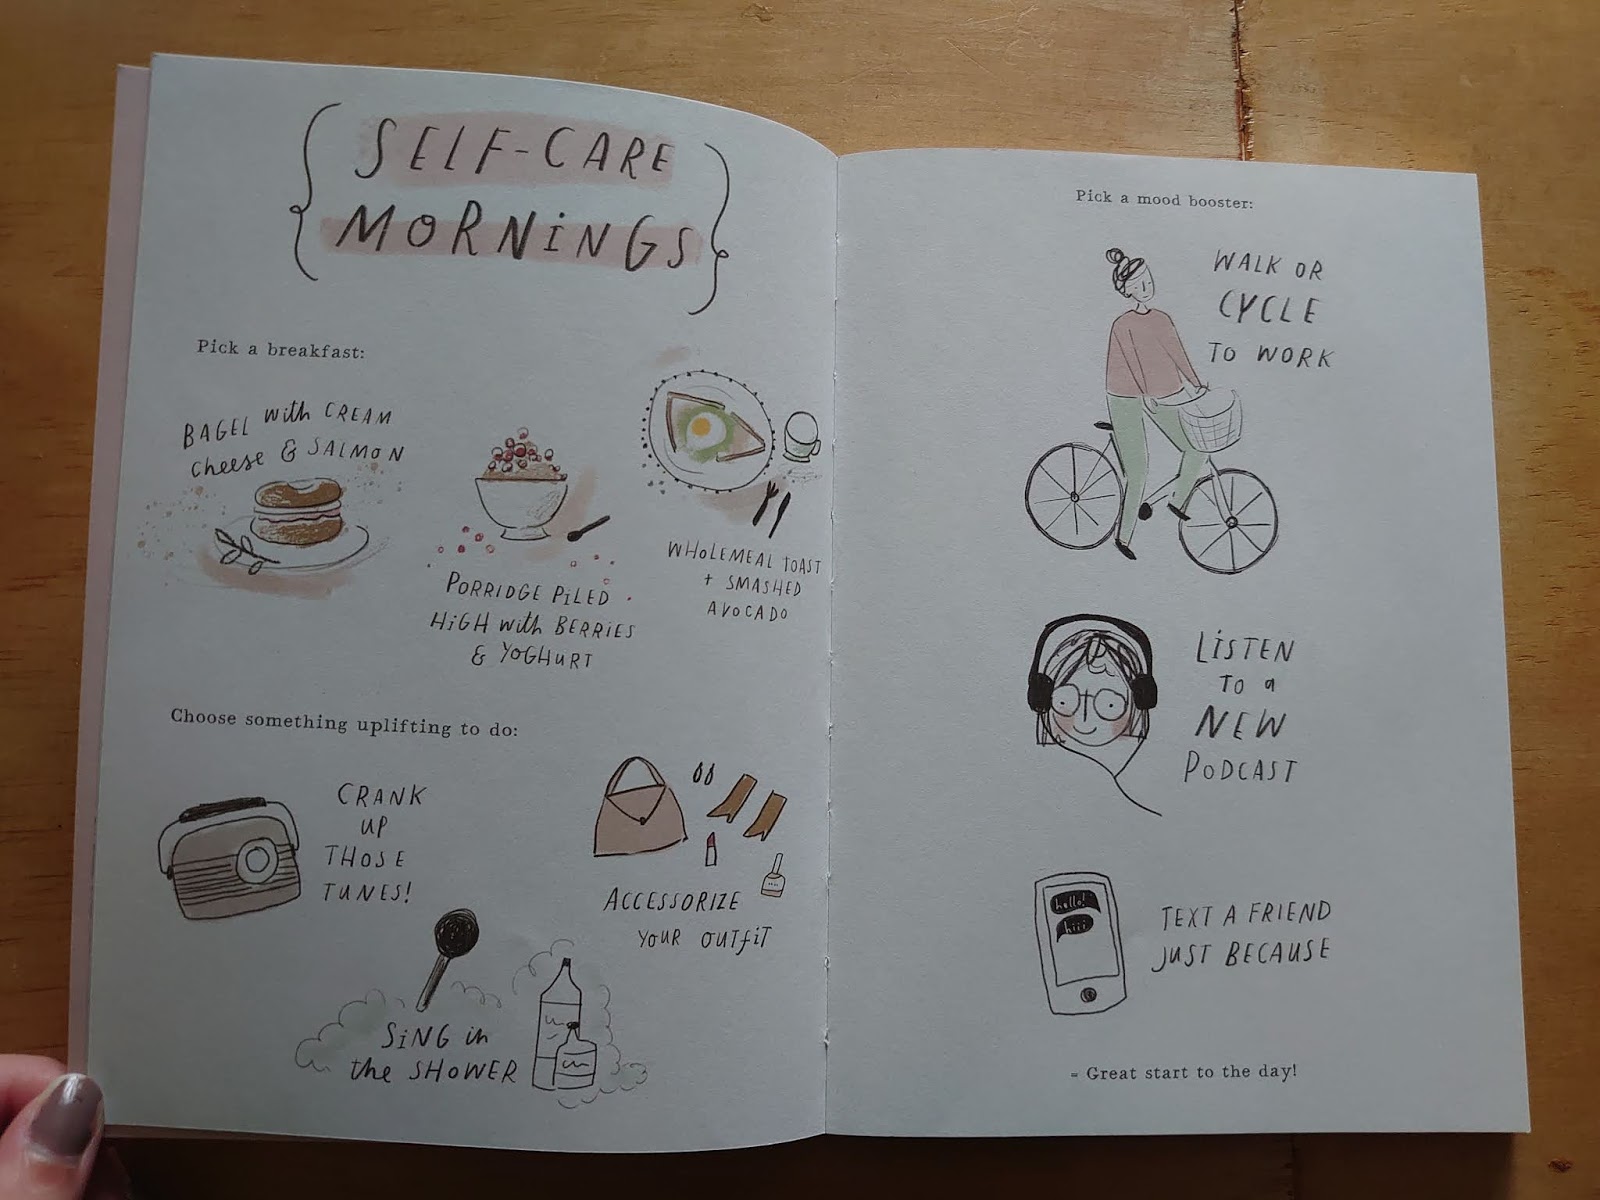 SELF-CARE
MORNiNGS
Pick a breakfast:
BAGEL with CREAM
cheese & SALMON
PORRIDGE PiLED
HiGH with BERRiES
& YOGHURT
WHOLEMEAL TOAST
+ SMASHED
AVOCADO
Choose something uplifting to do:
CRANK
UP
THOSE
TUNES!
ACCESSORIZE
YOUR OUTfiT
SiNG in
the SHOWER
Pick a mood booster:
WALK OR
CYCLE
TO WORK
LiSTEN
TO a
NEW
PODCAST
hello!
hiii
TEXT A FRIEND
JUST BECAUSE
= Great start to the day!